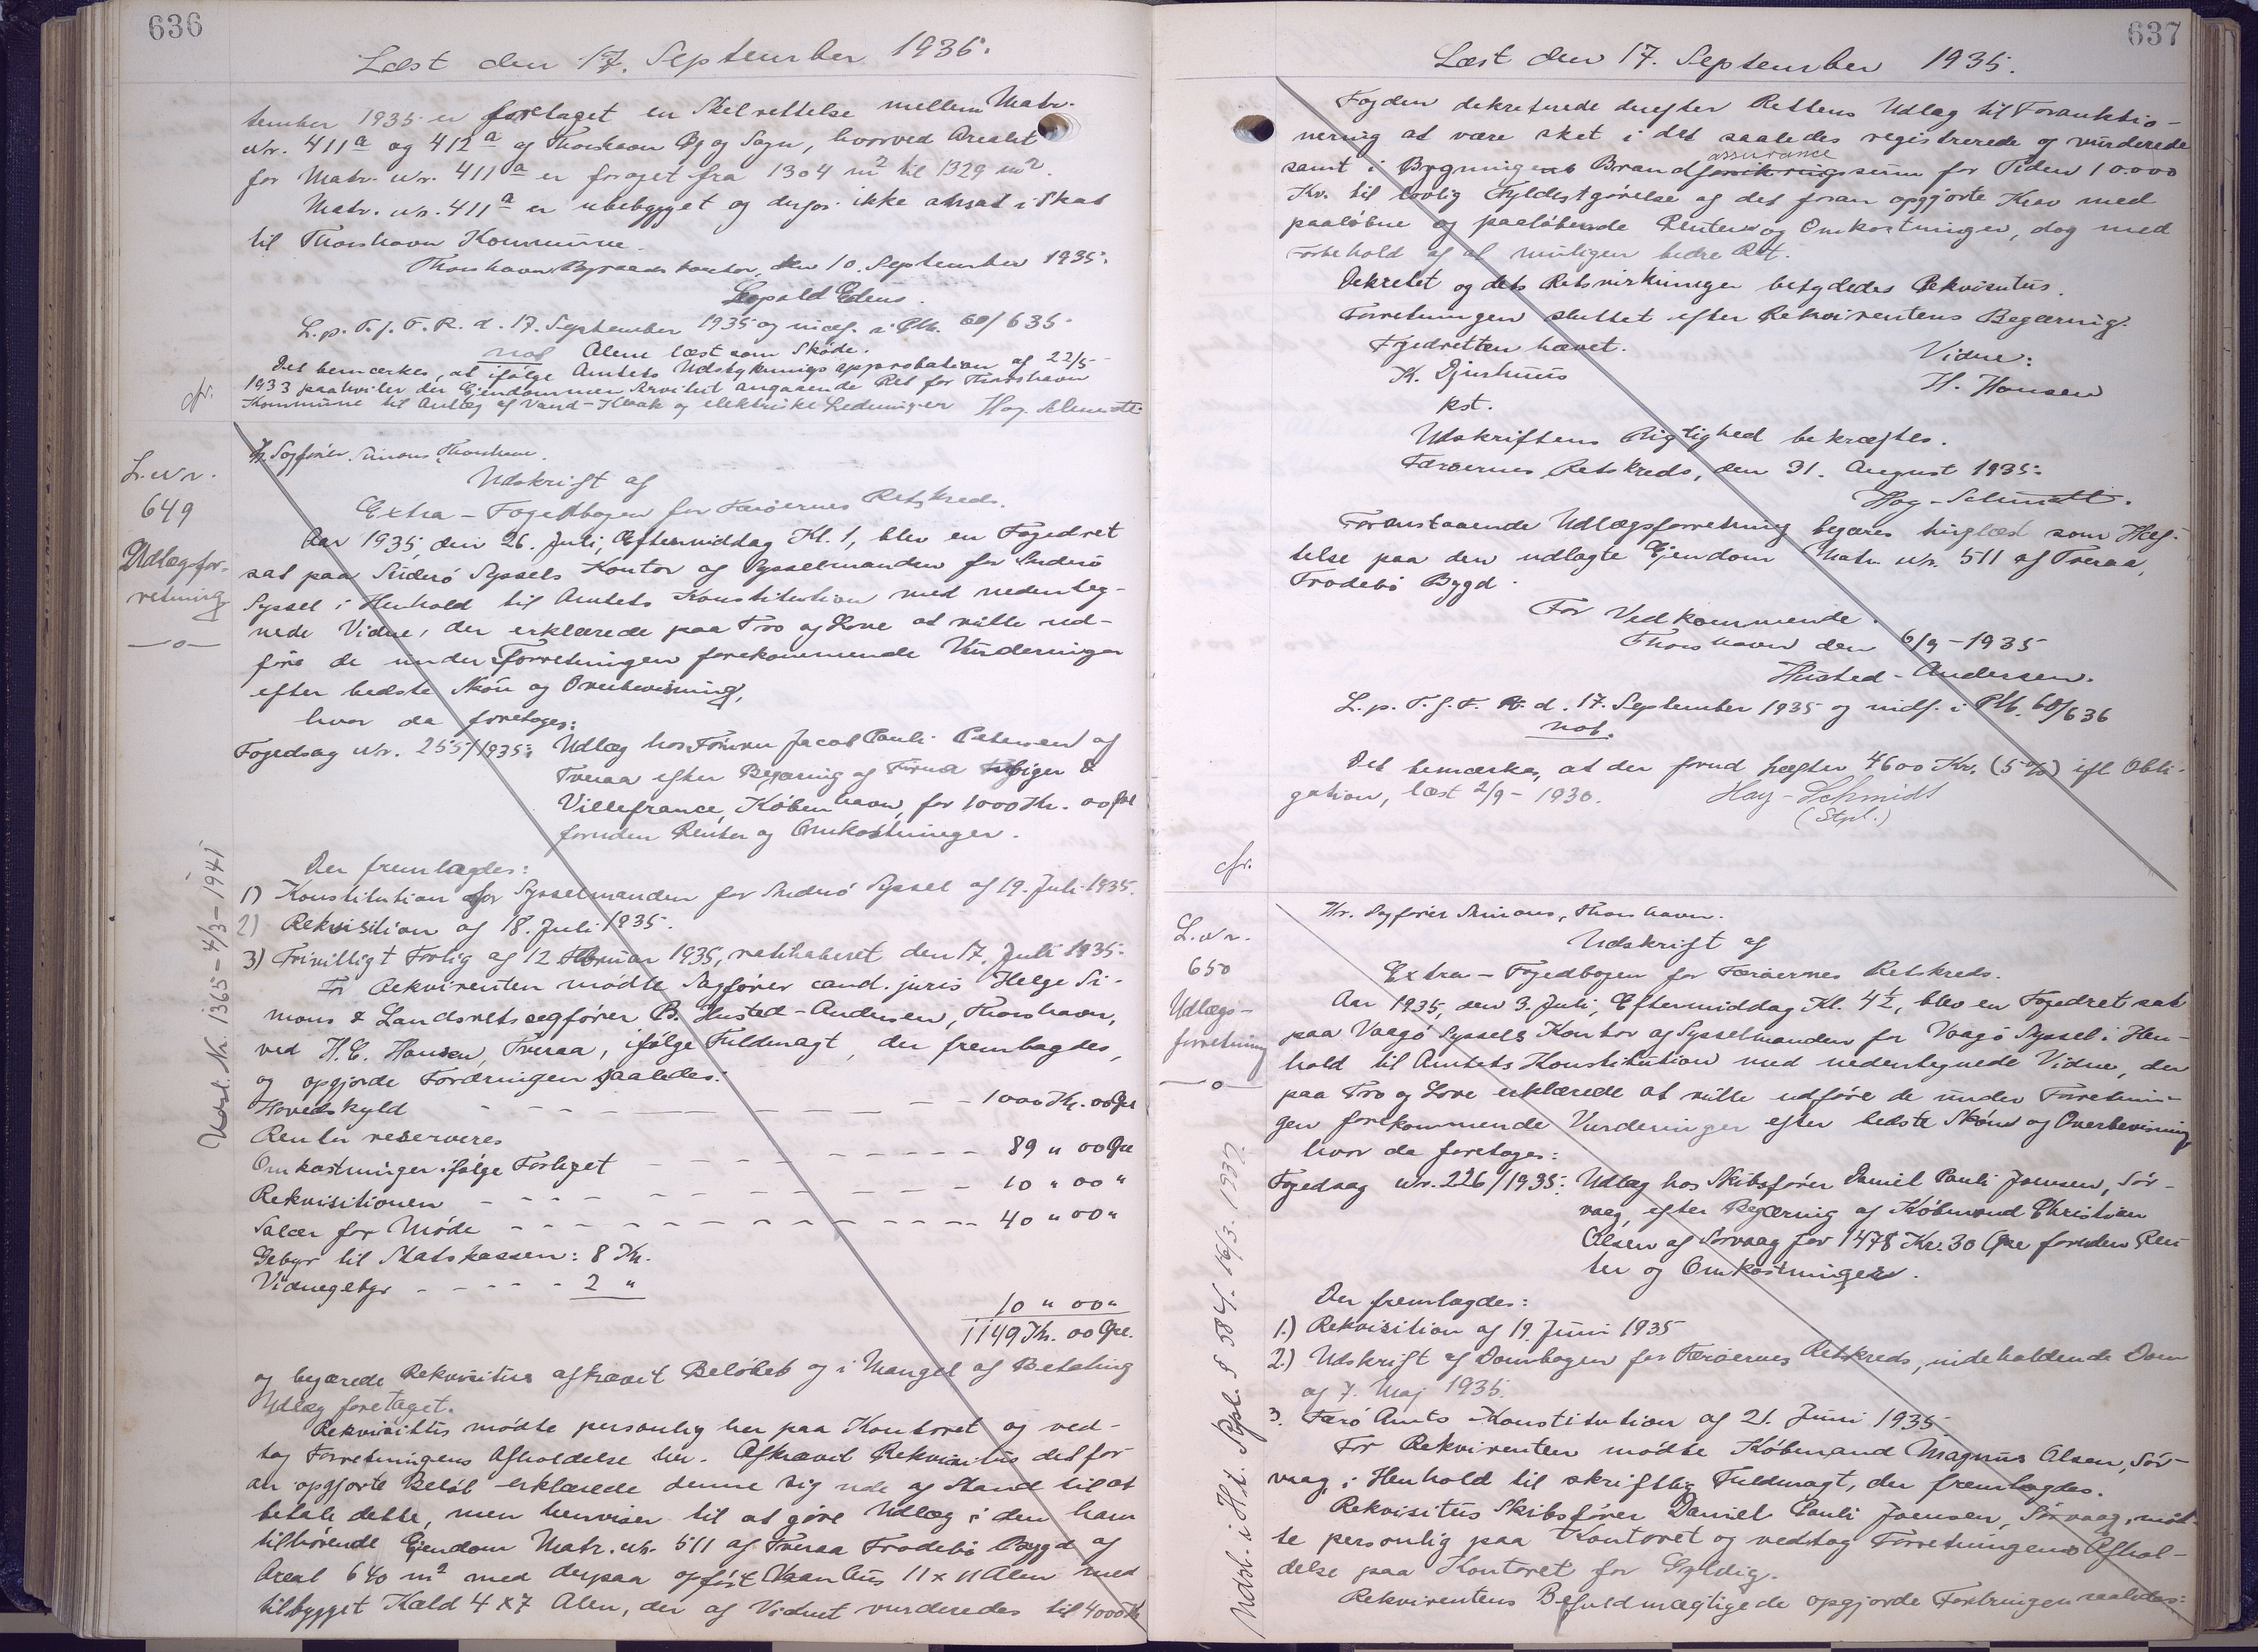 636
Læst den 17. September 1935.
tember 1935 er foretaget en Skelrettelse mellem Matr.
Nr. 411a og 412a af Thorshavn By og Sogn, hvorved Arealet
for Matr. Nr. 411a er forøget fra 1304 m2 til 1329 m2.
Matr. Nr. 411a er ubebygget og derfor ikke ansat i Skat
til Thorshavn Kommune.
Thorshavn Byraads kontor, den 10. September 1935.
L. p. T. f. F. R. d. 17. September 1935 og indf. i Ptb. 60/635
not Alene læst som Skøde.
Det bemærkes, at ifølge Amtets Udstykningsapprobation af 22/5
1933 paahviler der Ejendommen Servitut angaaende Ret for Thorshavn
Kommune til Anlæg af Vand-Kloak og elektriske Ledninger Hay-Schmidt
cfr.
L. Nr.
649
Udlægsfor-
retning
—o—
Hr. Sagfører Simons Thorshavn.
Udskrift af
Extra-Fogedbogen for Færøernes Retskreds.
Aar 1935, den 26. Juli, Eftermiddag Kl. 1, blev en Fogedret
sat paa Suderø Syssels Kontor af Sysselmanden for Suderø
Syssel i Henhold til Amtets Konstitution med nedenteg-
nede Vidne, der erklærede paa Tro og Love at ville ud-
føre de under Forretningen forekommende Vurderinger
efter bedste Skøn og Overbevisning,
hvor da foretoges:
Fogedsag Nr. 255/1935: Udlæg hos Jacob Pauli Petersen af
Tveraa efter Begæring af Firma &
Villefrance, København, for 1000 Kr. 00 Øre
foruden Renter og Omkostninger.
Der fremlagdes:
1) Konstitution for Sysselmanden for Suderø Syssel af 19. Juli 1935.
2) Rekvisition af 18. Juli 1935.
3) Frivilligt Forlig af 12 Februar 1935, ratihaberet den 17. Juli 1935.
For Rekvirenten mødte Sagfører cand. juris Helge Si-
mons & Landsretssagfører B. Husted-Andersen, Thorshavn,
ved H. E. Hansen, Tveraa, ifølge Fuldmagt, der fremlagdes,
og opgjorde Fordringen saaledes:
Hovedskyld - - - - - - 1000 Kr. 00 Øre
Renter reserveres
Omkostninger ifølge Forliget - - - - - 89 " 00 Øre
Rekvisitionen - - - - - - 10 " 00 "
Salær for Møde - - - - - - 40 " 00 "
Gebyr til Statskassen: 8 Kr.
Vidnegebyr - - - - 2 "
10 " 00 "
1149 Kr. 00 Øre.
og begærede Rekvisitus afkrævet Beløbet og i Mangel af Betaling
Udlæg foretaget.
Rekvisitus mødte personlig her paa Kontoret og ved-
tog Forretningens Afholdelse her. Afkrævet Rekvisitus det for-
an opgjorte Beløb erklærede denne sig ude af Stand til at
betale dette, men henviser til at gøre Udlæg i den ham
tilhørende Ejendom Matr. Nr. 511 af Tveraa Frodebø Bygd af
Areal 640 m2 med derpaa opført Vaanhus 11 x 11 Alen med
tilbygget Kald 4 x 7 Alen, der af Vidnet vurderedes til 4000 Kr
Udsl. Nr. 1365 - 4/3 - 1941
637
Læst den 17. September 1935.
Fogden dekreterede derefter Rettens Udlæg til Foranktio-
nering at være sket i det saaledes registrerede og vurderede
assurance
samt i Bygningens Brandforsikringssum for Tiden 10.000
Kr. til lovlig Fyldestgørelse af det foran opgjorte Krav med
paaløbne og paaløbende Renter og Omkostninger, dog med
Forbehold af al muligen bedre Ret.
Dekretet og dets Retsvirkninger betydedes Rekvisitus.
Forretningen sluttet efter Rekvirentens Begæring.
Fogedretten hævet.
Vidne:
K. Djurhuus
H. Hansen
kst.
Udskriftens Rigtighed bekræftes.
Færøernes Retskreds, den 31. August 1935.
Hay-Schmidt.
Foranstaaende Udlægsforretning begæres tinglæst som Hæf-
telse paa den udlagte Ejendom Matr. Nr. 511 af Tveraa,
Frodebø Bygd.
For Vedkommende.
Thorshavn den 6/9-1935
Husted-Andersen.
L. p. T. f. F. R. d. 17. September 1935 og indf. i Ptb. 60/636
not.
Det bemærkes, at der forud hæfter 4600 Kr. (5%) ifl Obli-
gation, læst 2/9-1930. Hay-Schmidt
(Stpl.)
cfr.
L. Nr.
650
Udlægs-
forretning
—o—
Hr. Sagfører Simons, Thorshavn.
Udskrift af
Extra-Fogedbogen for Færøernes Retskreds.
Aar 1935, den 3. Juli, Eftermiddag Kl. 4½, blev en Fogedret sat
paa Vaagø Syssels Kontor af Sysselmanden for Vaagø Syssel i Hen-
hold til Amtets Konstitution med nedentegnede Vidne, der
paa Tro og Love erklærede at ville udføre de under Forretnin-
gen forekommende Vurderinger efter bedste Skøn og Overbevisning
hvor da foretoges:
Fogedsag Nr. 226/1935: Udlæg hos Skibsfører Daniel Pauli Joensen, Sør-
vaag, efter Begæring af Købmand Christian
Olsen af Sørvaag for 1478 Kr. 30 Øre foruden Ren-
ter og Omkostninger.
Der fremlagdes:
1.) Rekvisition af 19. Juni 1935
2.) Udskrift af Dombogen for Færøernes Retskreds, indeholdende Dom
af 7. Maj 1935.
3. Færø Amts Konstitution af 21. Juni 1935.
For Rekvirenten mødte Købmand Magnus Olsen, Sør-
vaag, i Henhold til skriftlig Fuldmagt, der fremlagdes.
Rekvisitus Skibsfører Daniel Pauli Joensen, Sørvaag, mød-
te personlig paa Kontoret og vedtog Forretningens Afhol-
delse paa Kontoret for Gyldig.
Rekvirentens Befuldmægtigede opgjorde Fordringen saaledes:
Udsl. i H.t. Rpl. S 584. 16/3. 1937